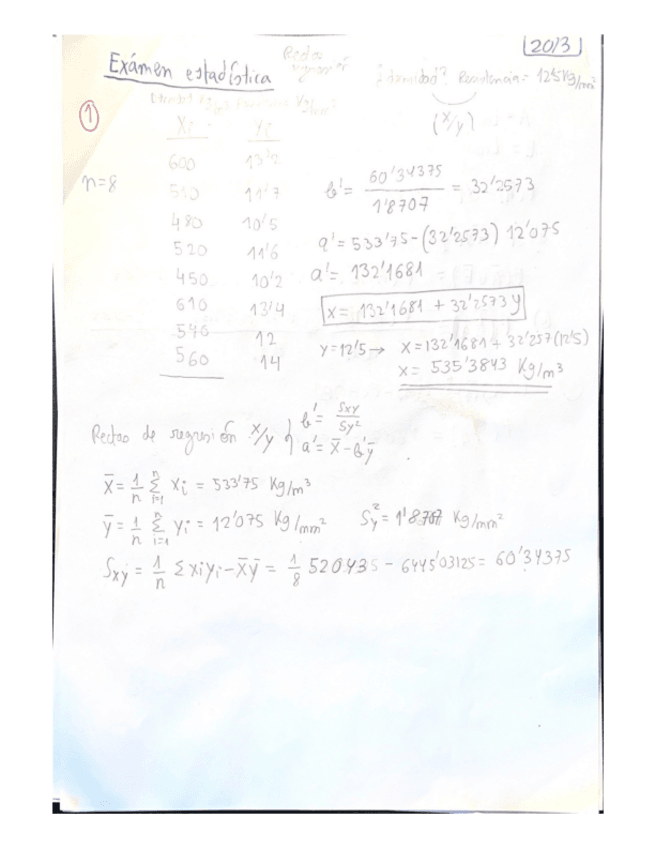 2013
Exámen estadística
Rectas
regresión
¿densidad? Resistencia = 12'5 Kg/mm²
(x/y)
①
Xi Yi
600 13'2
n=8
11'7
480 10'5
520 11'6
450 10'2
610 13'4
540 12
560 14
b' = 60'34375 / 1'8707 = 32'2573
a' = 533'75 - (32'2573) 12'075
a' = 132'1681
x = 132'1681 + 32'2573 y
y = 12'5 → x = 132'1681 + 32'257 (12'5)
x = 535'3843 Kg/m³
Rectas de regresión x/y { b' = Sxy / Sy²
a' = x̄ - b'ȳ
x̄ = 1/n Σ i=1 n xi = 533'75 Kg/m³
ȳ = 1/n Σ i=1 n yi = 12'075 Kg/mm² Sy² = 1'8707 Kg/mm²
Sxy = 1/n Σ xiyi - x̄ȳ = 1/8 520435 - 6445'03125 = 60'34375